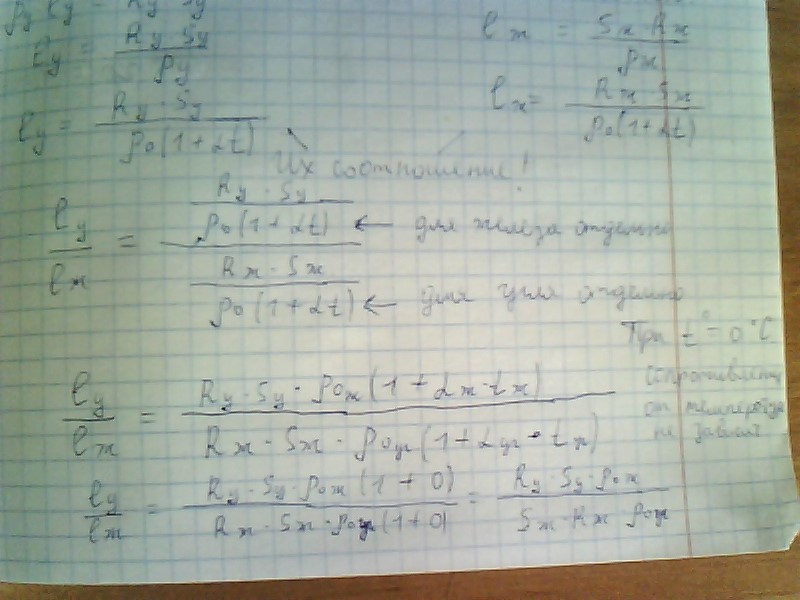 ℓy = Ry Sy / ρy
ℓж = Sж · Rж / ρж
ℓy = Ry · Sy / ρ0(1 + αt)
ℓж = Rж Sж / ρ0(1 + αt)
Их соотношение!
ℓy / ℓж = (Ry · Sy / ρ0(1 + αt)) / (Rж · Sж / ρ0(1 + αt))
← для железа отдельно
← для угля отдельно
При t° = 0°C
сопротивление
от температуры
не зависит
ℓy / ℓж = Ry · Sy · ρ0ж(1 + αж · tж) / Rж · Sж · ρ0у(1 + αу · tж)
ℓy / ℓж = Ry · Sy · ρ0ж(1 + 0) / Rж · Sж · ρ0у(1 + 0) = Ry · Sy · ρ0ж / Sж · Rж · ρ0у